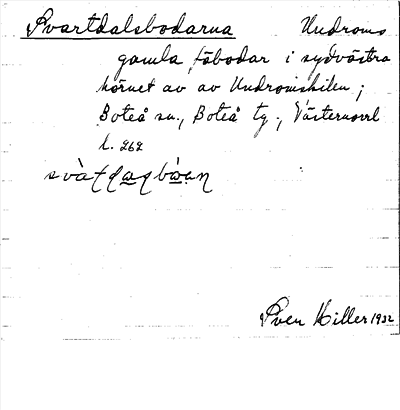 Svartdalsbodarna Undroms
gamla fäbodar i sydvästra
hörnet av av Undromskilen ;
Boteå sn., Boteå tg., Västernorrl
l. 262
Sven Hiller 1932